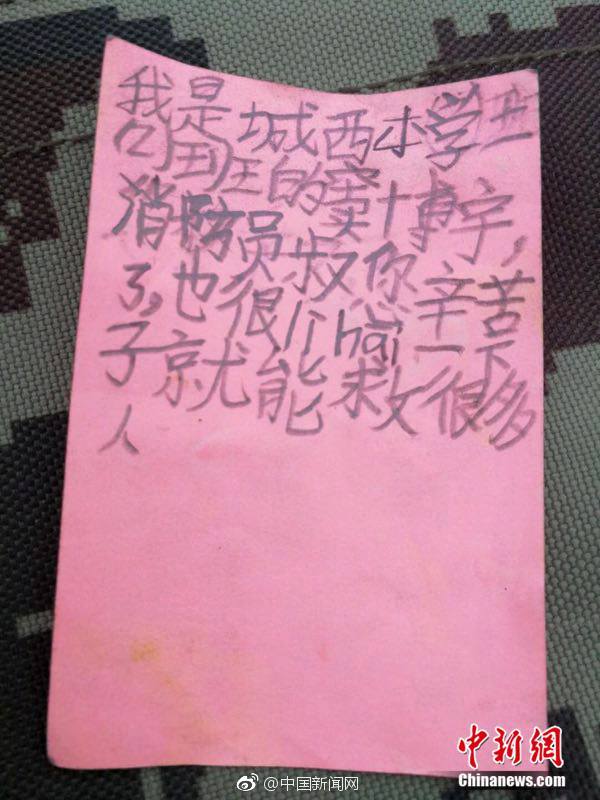 我是城西小学
班的窦博宇,
消防员叔你辛苦
了,也很厉hai一下
子就能救很多
人
中新网
Chinanews.com
@中国新闻网